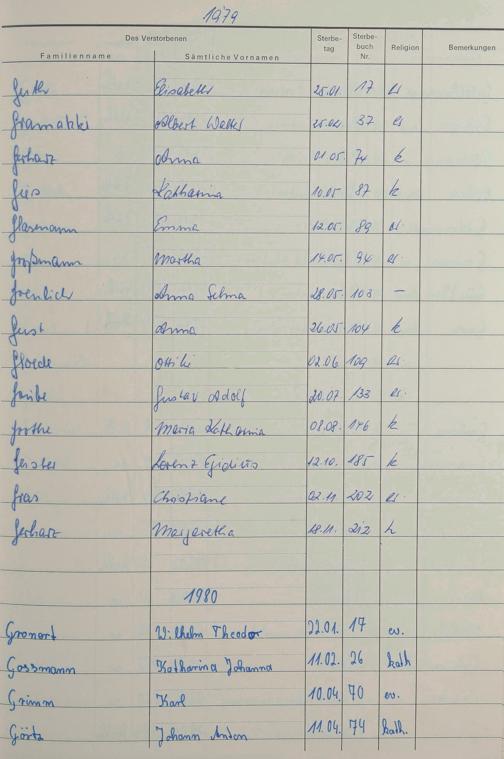 1979
Des Verstorbenen Sterbe- Sterbe-
Familienname Sämtliche Vornamen tag buch Nr. Religion Bemerkungen
Guth Elisabeth 25.01. 17 ev
Gramatzki Albert Walter 25.02. 37 ev
Gerharz Anna 01.05. 74 k
Geis Katharina 10.05. 87 k
Glasmann Emma 12.05. 89 ev.
Großmann Martha 14.05. 94 ev.
Anna Selma 28.05. 103 —
Geist Anna 26.05 104 k
Gloede Ottilie 02.06 109 ev.
Gustav Adolf 20.07 133 ev.
Grothe Maria Katharina 08.08. 146 k
Gerster Lorenz Egidius 12.10. 185 k
Gras Christiane 02.11 202 ev.
Gerharz Margaretha 28.11. 212 k
1980
Gronert Wilhelm Theodor 22.01. 17 ev.
Gossmann Katharina Johanna 11.02. 26 kath
Grimm Karl 10.04. 70 ev.
Görtz Johann Anton 11.04. 74 kath.